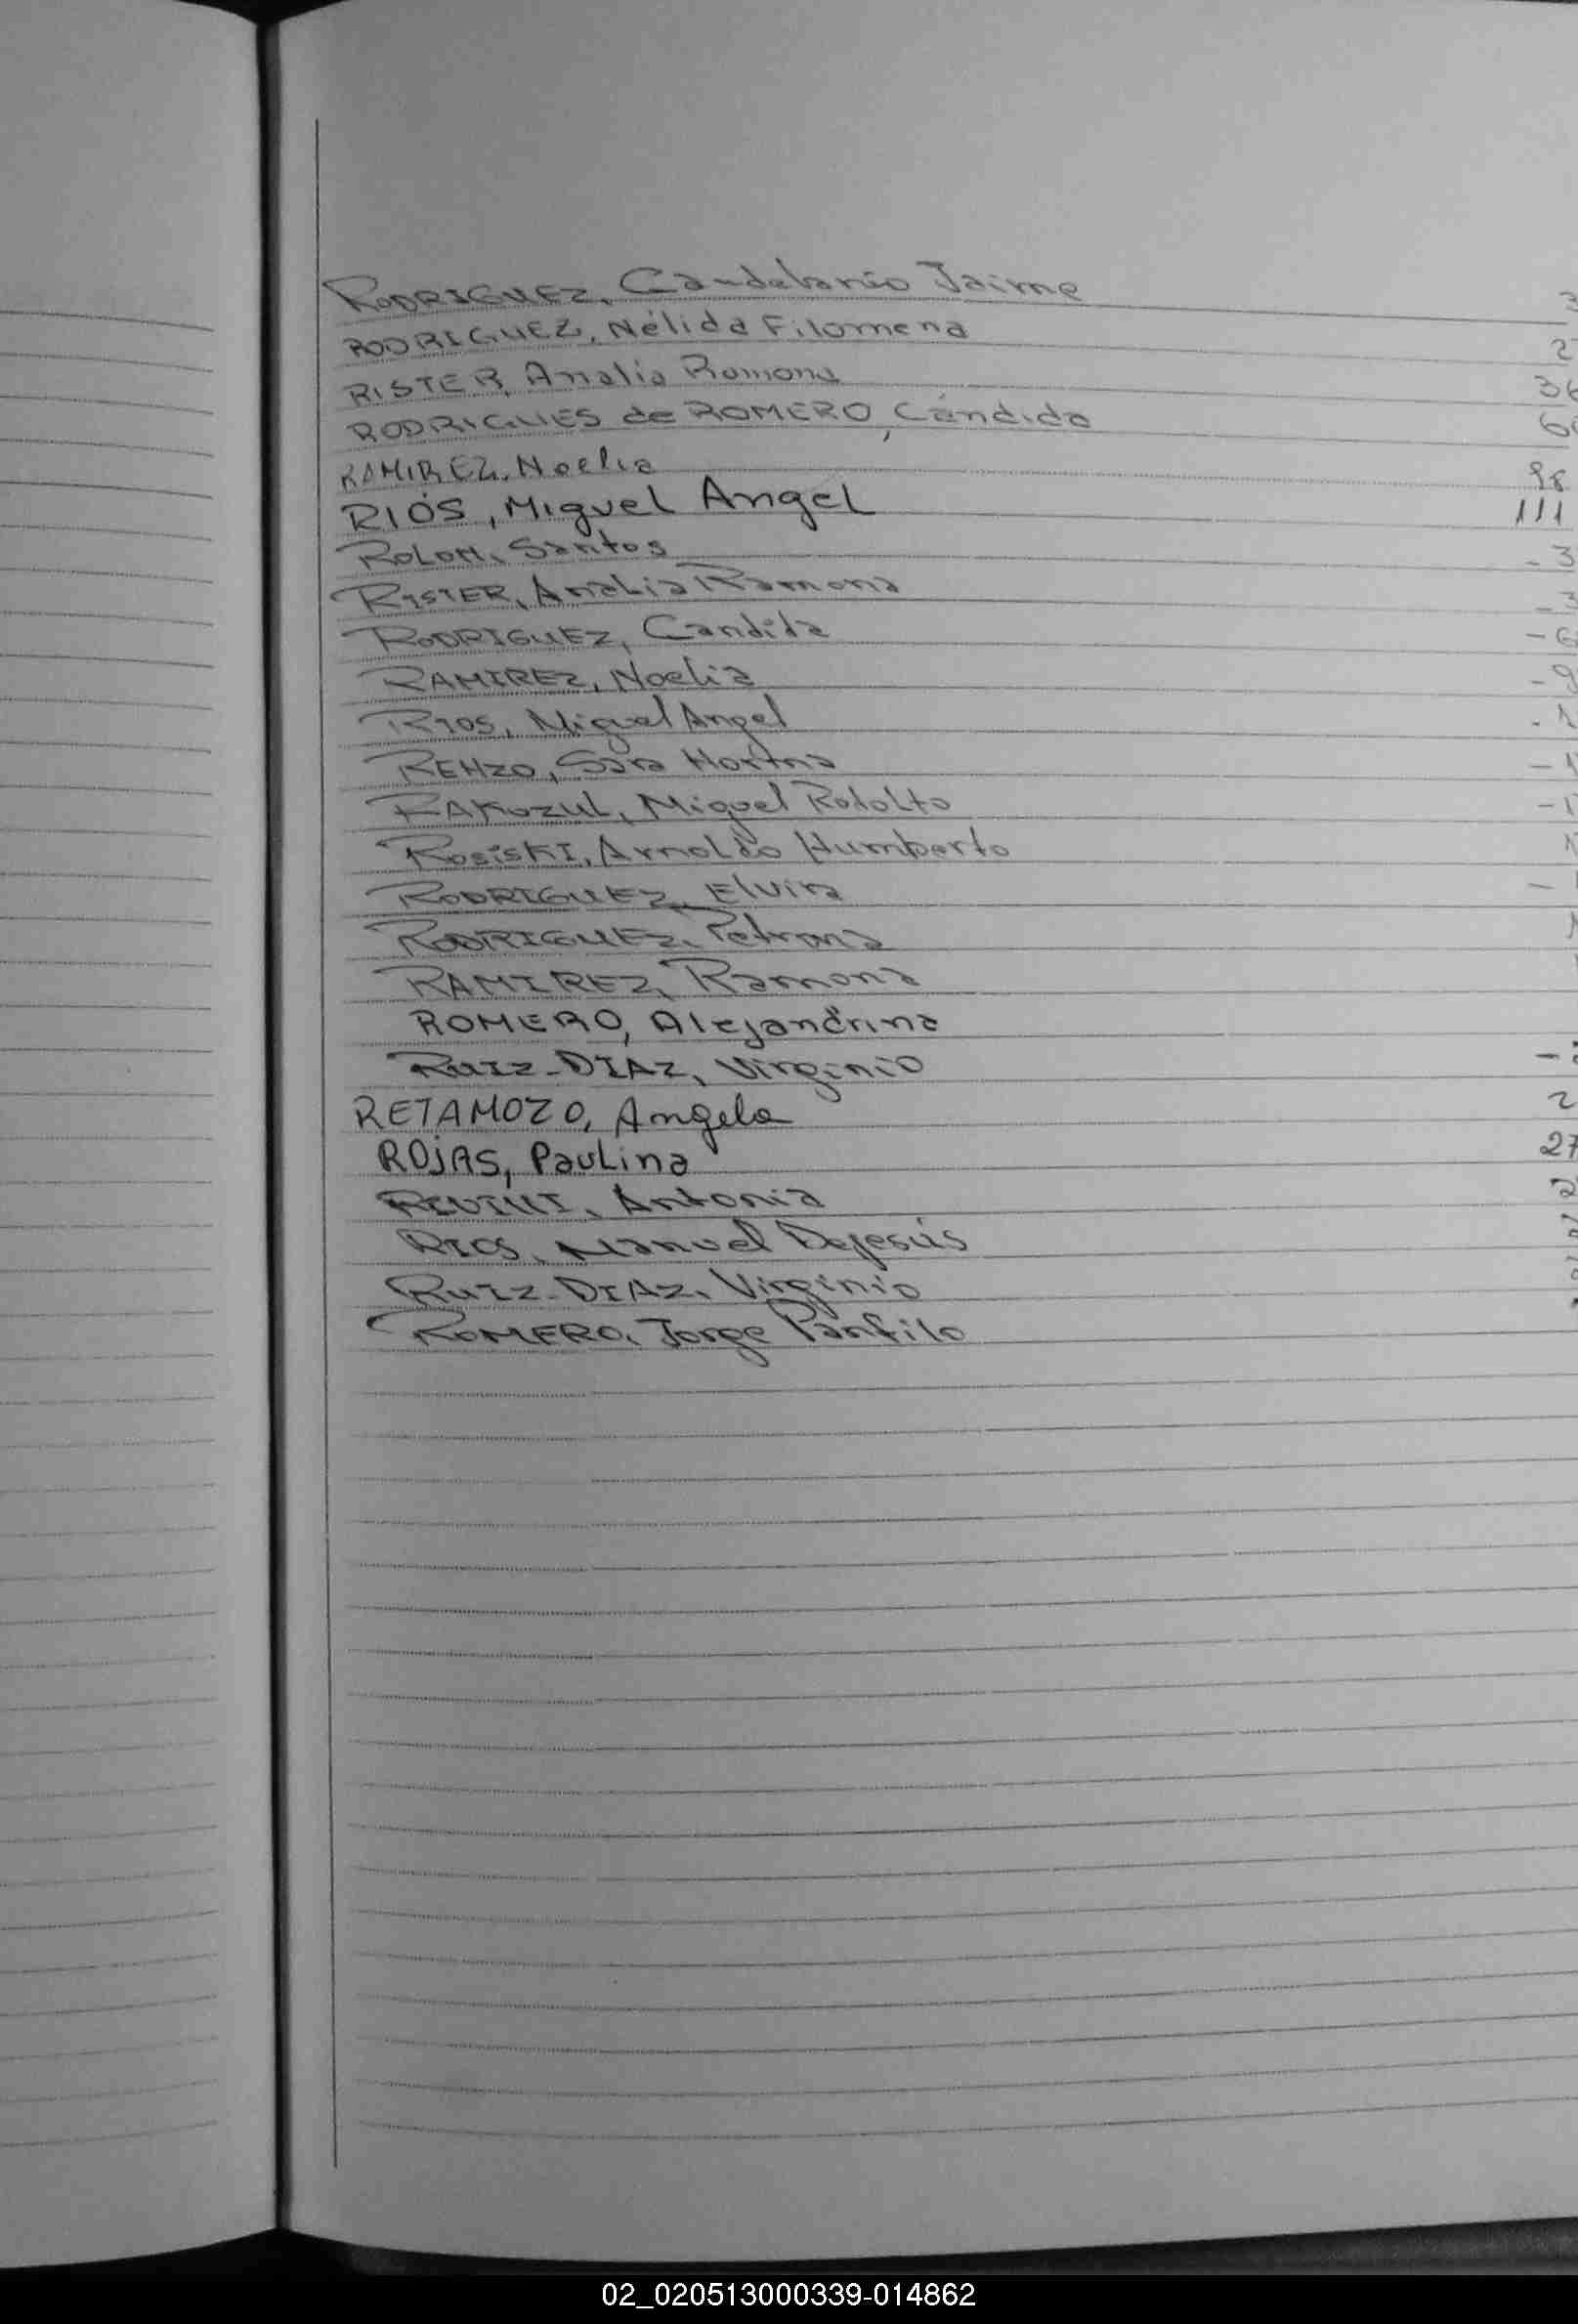 RODRIGUEZ, Candelario Jaime 3
RODRIGUEZ, Nélida Filomena 2
RISTER, Analia Ramona 36
RODRIGUES de ROMERO, Cándida 6
RAMIREZ, Noelia 98
RIÓS, Miguel Angel 111
ROLON, Santos - 3
RISTER, Analia Ramona - 3
RODRIGUEZ, Candida - 6
RAMIREZ, Noelia - 9
RIOS, Miguel Angel - 1
RENZO, Sara - 1
Miguel Rodolfo - 1
ROSISKI, Arnoldo Humberto 1
RODRIGUEZ, Elvira -
RODRIGUEZ, Petrona
RAMIREZ, Ramona
ROMERO, Alejandrina
RUIZ-DIAZ, Virginio -
RETAMOZO, Angela 2
ROJAS, Paulina 27
Antonia 2
RIOS, Manuel Dejesús
RUIZ-DIAZ, Virginio
ROMERO, Jorge Pánfilo
02_020513000339-014862